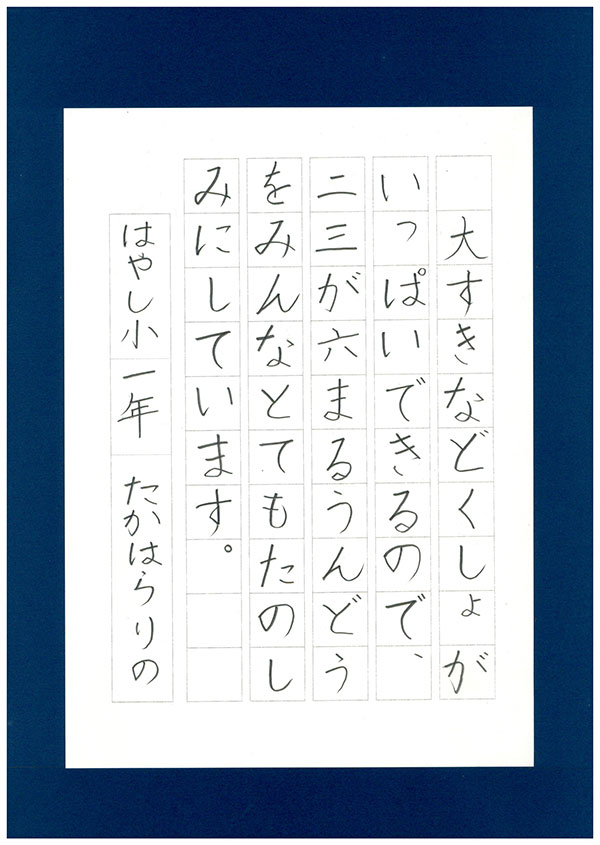 大すきなどくしょが
いっぱいできるので、
二三が六まるうんどう
をみんなとてもたのし
みにしています。
はやし小一年 たかはらりの